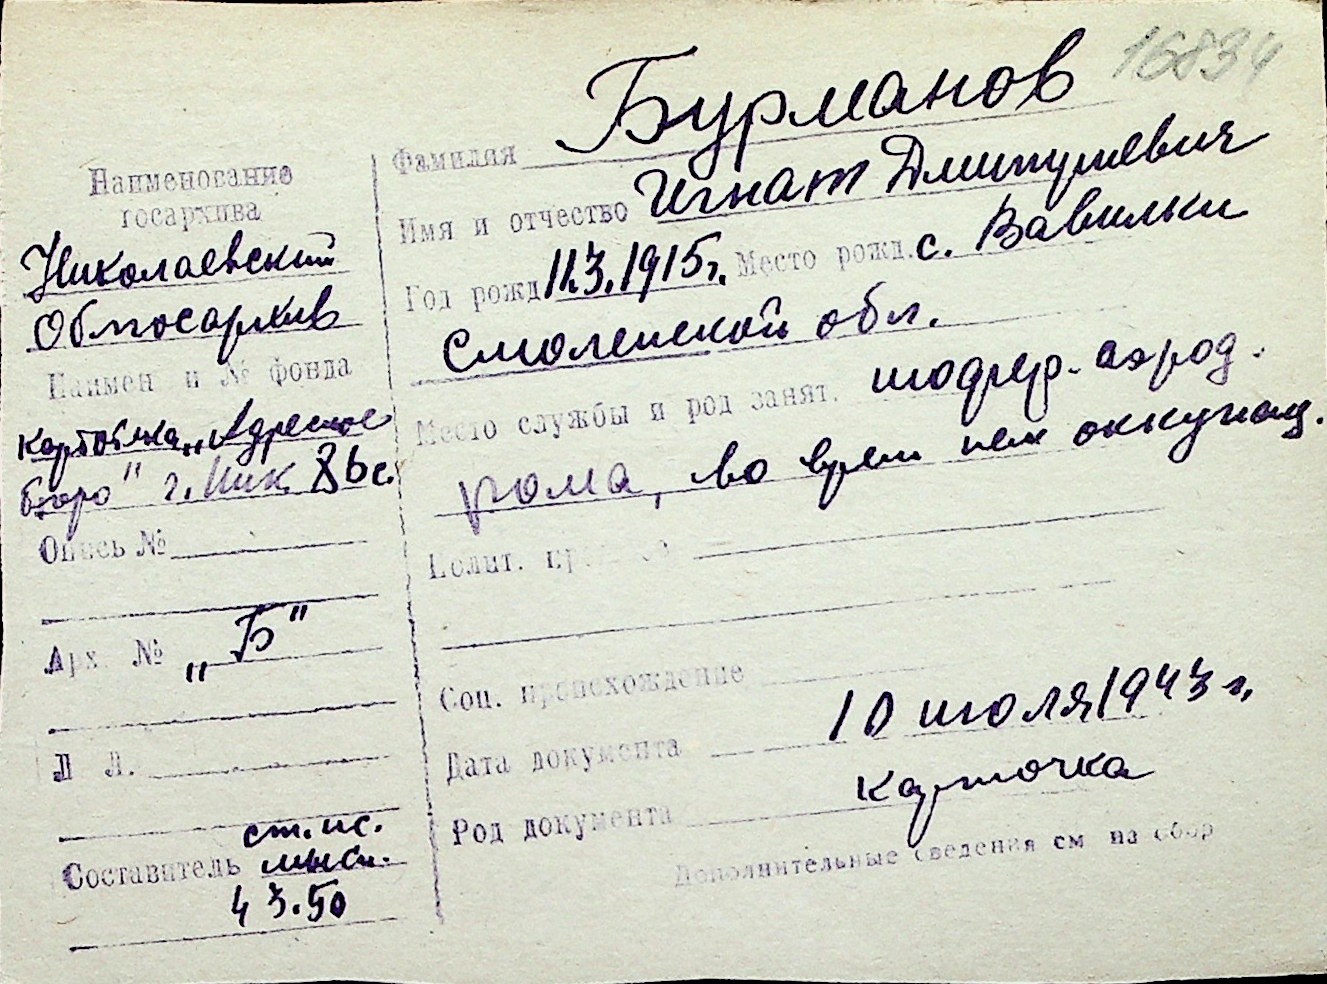 16834
Наименование
госархива
Николаевский
Облгосархив
Наимен и № фонда
картотека „Адресное
бюро" г. Ник.
Опись №
Арх № „Б"
Л Л.
ст. ис.
Составитель
43.50
Фамилия Бурманов
Имя и отчество Игнат
Год рожд 11.3.1915г. Место рожд. с. Вавилки
Смоленской обл.
Место службы и род занят. шофер аэрод-
рома, во врем нем оккупац.
Полит.
Соц. происхождение
Дата документа 10 июля 1943 г.
Род документа карточка
Дополнительные сведения см на обор